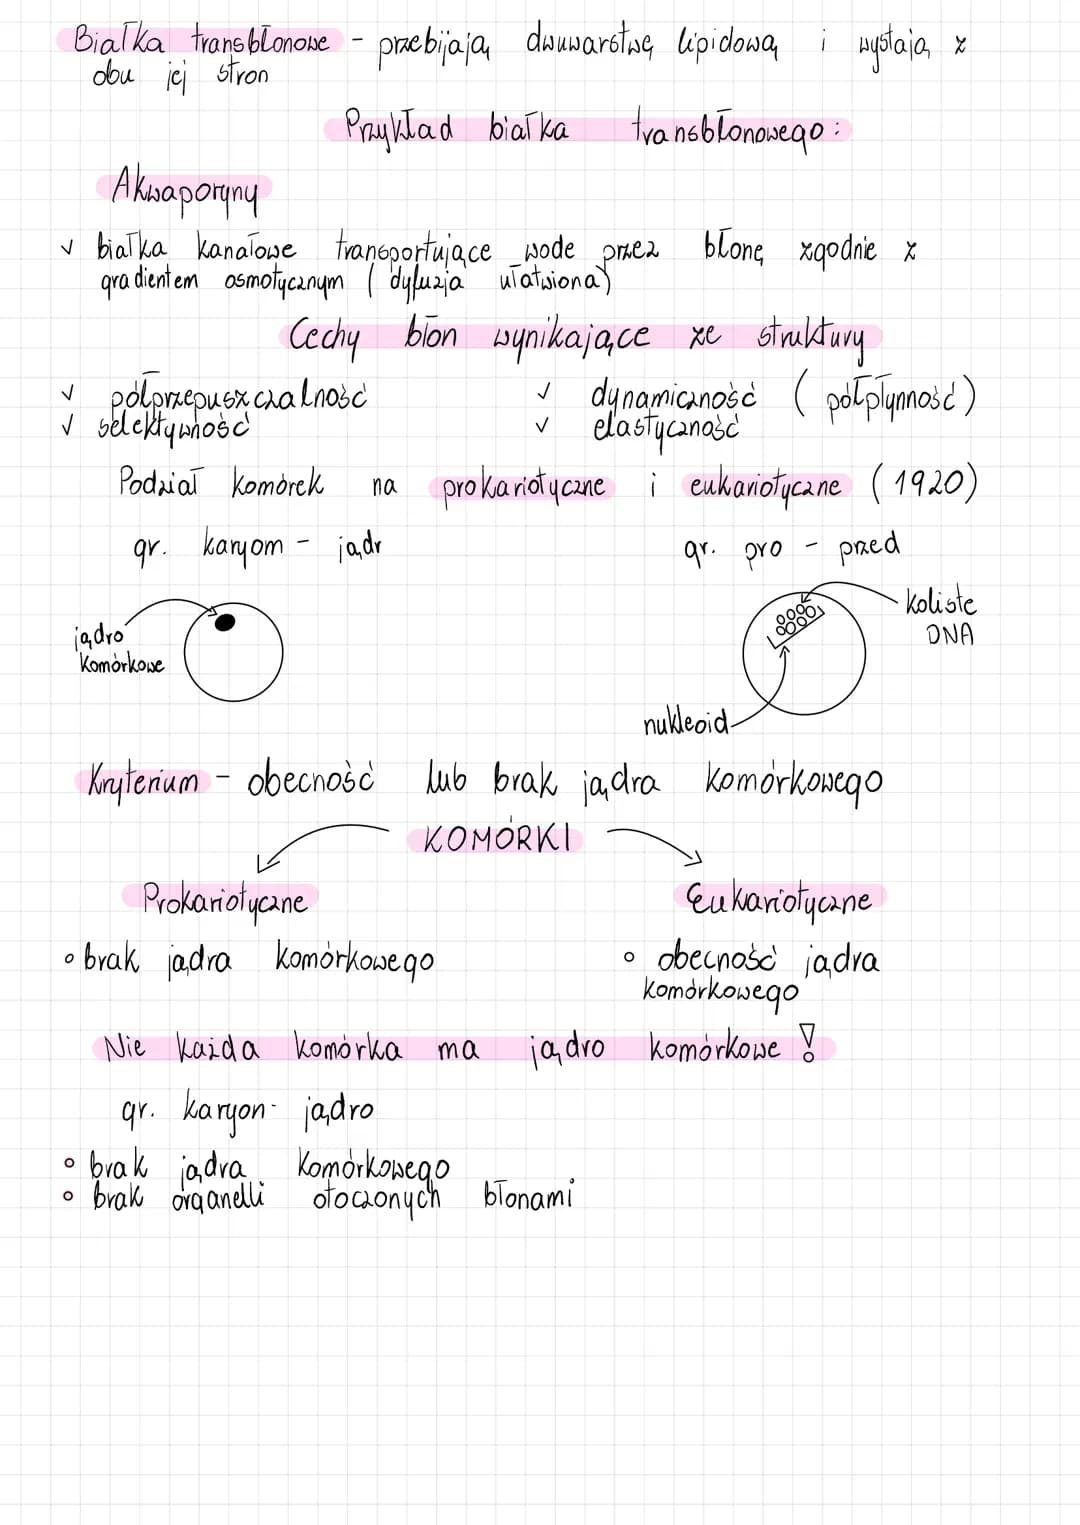 Białka transbłonowe - przebijają dwuwarstwę lipidową i wystają z
obu jej stron
Przykład białka transbłonowego:
Akwaporyny
✓ białka kanałowe transportujące wodę przez błonę zgodnie z
gradientem osmotycznym (dyfuzja ułatwiona)
Cechy błon wynikające ze struktury
✓ półprzepuszczalność ✓ dynamiczność (półpłynność)
✓ selektywność ✓ elastyczność
Podział komórek na prokariotyczne i eukariotyczne (1920)
gr. karyom - jądr gr. pro - przed
koliste
DNA
jądro
komórkowe
nukleoid
Kryterium - obecność lub brak jądra komórkowego
KOMÓRKI
Prokariotyczne Eukariotyczne
◦ brak jądra komórkowego ◦ obecność jądra
komórkowego
Nie każda komórka ma jądro komórkowe !
gr. karyon - jądro
◦ brak jądra komórkowego
◦ brak organelli otoczonych błonami